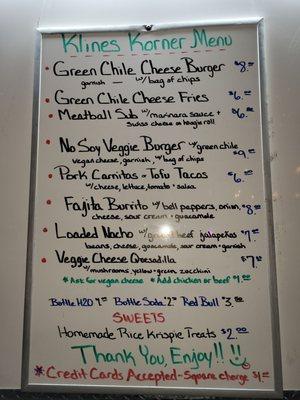 Klines Korner Menu
Green Chile Cheese Burger $8.
garnish — w/bag of chips
Green Chile Cheese Fries $6.
Meatball Sub w/marinara sauce + $6.
Swiss cheese on hoagie roll
No Soy Veggie Burger w/green chile
vegan cheese, garnish, w/bag of chips $9.
Pork Carnitas or Tofu Tacos $6.
w/cheese, lettuce, tomato + salsa
Fajita Burrito w/ bell peppers, onion, $8.
cheese, sour cream + guacamole
Loaded Nacho w/ground beef jalapeños $7.
beans, cheese, guacamole, sour cream + garnish
Veggie Cheese Quesadilla $7
w/mushrooms, yellow + green zucchini
*Ask for vegan cheese *Add chicken or beef
Bottle H2O Bottle Soda 2. Red Bull $3.
SWEETS
Homemade Rice Krispie Treats $2.00
Thank You, Enjoy!!
*Credit Cards Accepted - Square charge $1.00